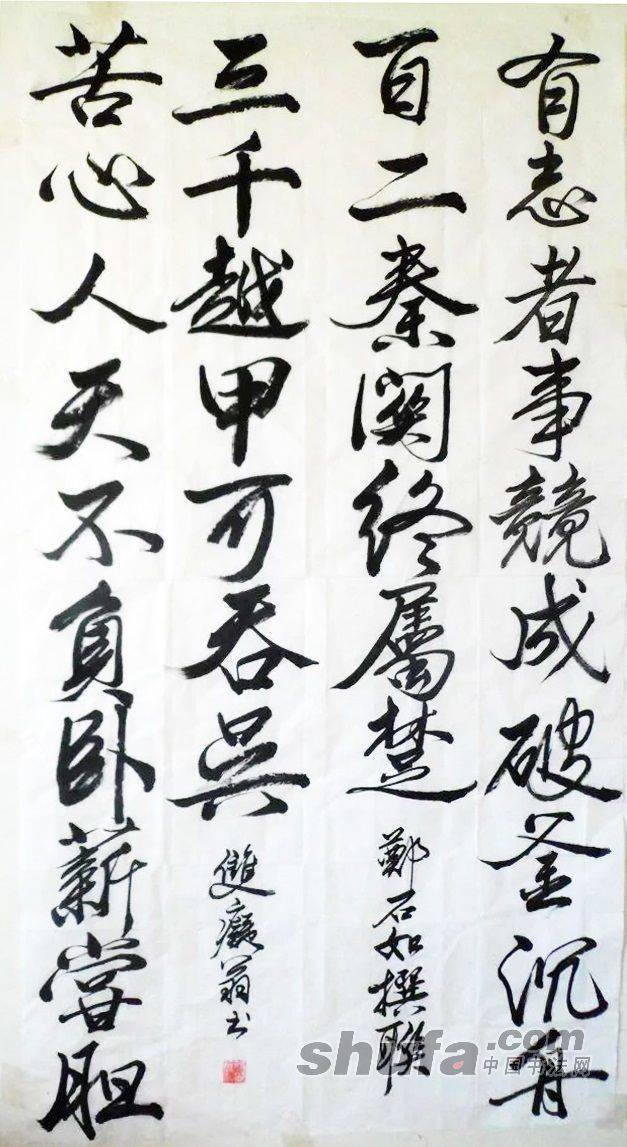 有志者事競成破釜沉舟
百二秦關終屬楚
鄭石如撰聯
苦心人天不負卧薪嘗胆
三千越甲可吞吴
雙癡翁书
shufa.com
中国书法网